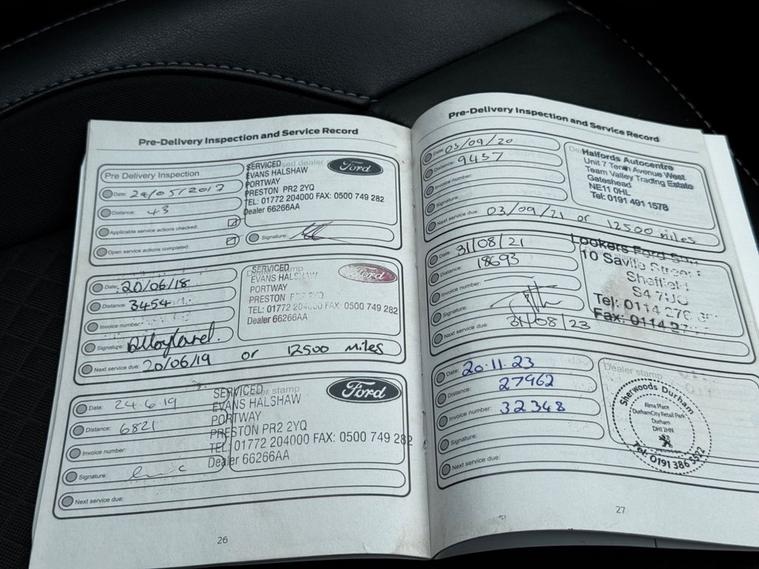 Pre-Delivery Inspection and Service Record
Pre Delivery Inspection
Date:
Distance: 43
Applicable service actions checked:
Open service actions completed:
SERVICED
EVANS HALSHAW
PORTWAY
PRESTON PR2 2YQ
TEL: 01772 204000 FAX: 0500 749 282
Dealer 66266AA
Ford
Signature:
Date: 20/06/18
Distance: 3454
Invoice number:
Signature:
Next service due: 20/06/19 or 12500 miles
SERVICED
EVANS HALSHAW
PORTWAY
PRESTON PR2 2YQ
TEL: 01772 204000 FAX: 0500 749 282
Dealer 66266AA
Ford
Date: 24.6.19
Distance: 6821
Invoice number:
Signature:
Next service due:
SERVICED
EVANS HALSHAW
PORTWAY
PRESTON PR2 2YQ
TEL: 01772 204000 FAX: 0500 749 282
Dealer 66266AA
Ford
26
Pre-Delivery Inspection and Service Record
Date: 03/09/20
Distance: 9457
Invoice number:
Signature:
Next service due: 03/09/21 or 12500 miles
Halfords Autocentre
Unit 7 Tenth Avenue West
Team Valley Trading Estate
Gateshead
NE11 0HL
Tel: 0191 491 1578
Date: 31/08/21
Distance: 18693
Invoice number:
Signature:
Next service due: 31/08/23
Lookers Ford
10 Savile Street
Sheffield
S4 7UD
Tel: 0114 276
Fax: 0114 27
Date: 20.11.23
Distance: 27962
Invoice number: 32348
Signature:
Next service due:
Dealer stamp
Sherwoods Durham
Alma Place
Durham City Retail Park
Durham
DH1 2HN
Tel: 0191 386 5522
27